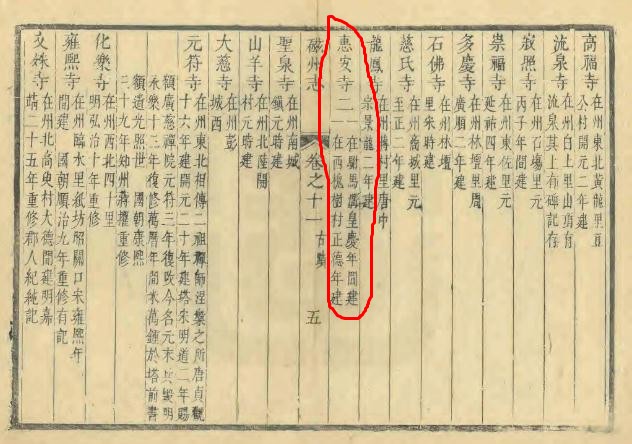 高福寺 在州東北黃龍里直
公村開元二年建
流泉寺 在州白上里山崩有
流泉其上有碑記存
寂照寺 在州石塲里元
丙子年間建
崇福寺 在州東佐里元
延祐四年建
多慶寺 在州林壇里周
廣順二年建
石佛寺 在州林壇
里宋時建
慈氏寺 在州商城里元
至正二年建
龍鳳寺 在州講村里唐中
宗景龍二年建
惠安寺二 一在駙馬溝皇慶年間建
一在西槐樹村正德年建
磁州志 卷之十一 古蹟 五
聖泉寺 在州南城
鎮元時建
山羊寺 在州北陸開
村元時建
大慈寺 在州彭
城西
元符寺 在州東北相傳二祖禪師涅槃之所唐貞觀
十六年建開元二十年建塔宋明道二年賜
額廣慈禪院元符三年復改今名元末兵燬明
永樂十三年復修萬曆年間米萬鍾於塔前書
額道光照世 國朝康熙
三十九年知州蔣擢重修
化樂寺 在州西北四十里
明弘治十年重修
雍熙寺 在州醉水里紙坊昭關口宋雍熙年
間建 國朝順治九年重修有記
文殊寺 在州北南史村大德間建明嘉
靖二十五年重修郡人紀純記